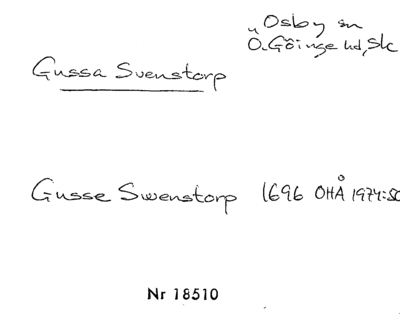 Osby sn
Ö. Göinge hd, Sk
Gussa Svenstorp
Gusse Swenstorp 1696 OHÅ 1974:
Nr 18510